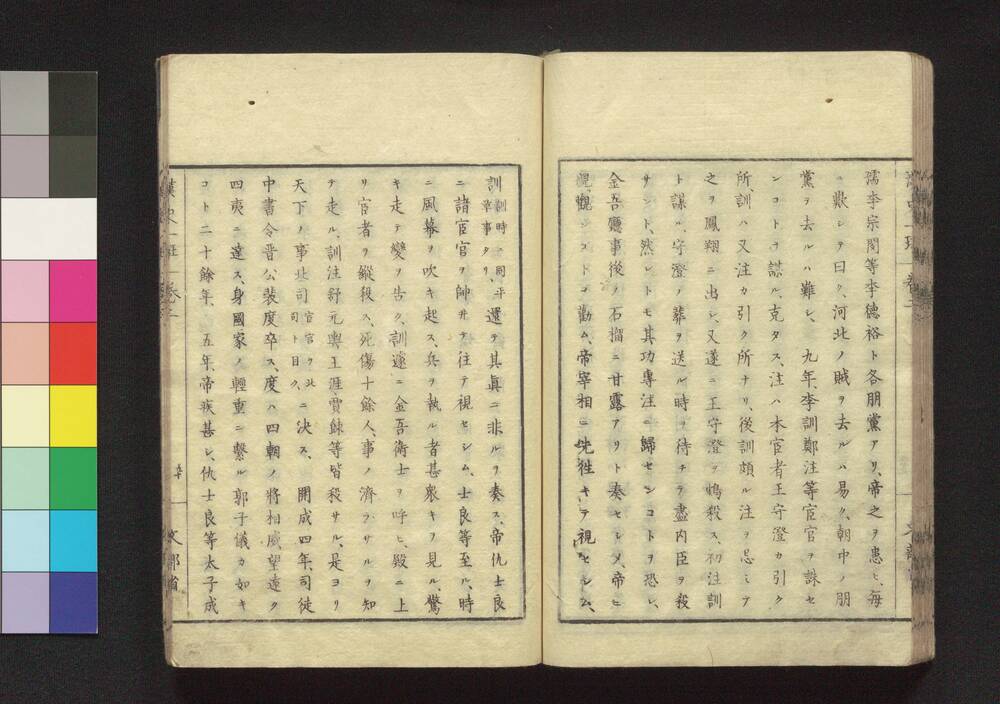 儒李宗閔等李德裕ト各朋黨アリ、帝之ヲ患ヒ、每
ニ歎シテ曰ク、河北ノ賊ヲ去ルハ易ク、朝中ノ朋
黨ヲ去ルハ難シ、 九年、李訓鄭注等宦官ヲ誅セ
ンコトヲ謀ル、克タス、注ハ本宦者王守澄カ引ク
所、訓ハ又注カ引ク所ナリ、後訓頗ル注ヲ忌ミテ
之ヲ鳳翔ニ出シ、又遂ニ王守澄ヲ鴆殺ス、初注訓
ト謀ル、守澄ノ葬ヲ送ル時ヲ待チテ盡内臣ヲ殺
サント、然レトモ其功專注ニ歸センコトヲ恐レ、
金吾廳事後ノ石榴ニ甘露アリト奏セシメ、帝ヒ
觀ンコトヲ勸ム、帝宰相ニ先往キテ視セシム、
訓訓時ニ同平章事タリ、還テ其眞ニ非ルヲ奏ス、帝仇士良
ニ諸宦官ヲ帥井テ往テ視セシム、士良等至ル、時
ニ風幕ヲ吹キ起ス、兵ヲ執ル者甚衆キヲ見ル、驚
キ走テ變ヲ告ク、訓遽ニ金吾衛士ヲ呼ヒ、殿ニ上
リ宦者ヲ縱殺ス、死傷十餘人、事ノ濟ラサルヲ知
テ走ル、訓注舒元輿王涯賈餗等皆殺サル、是ヨリ
天下ノ事北司宦官ヲ北司ト目ク、ニ決ス、 開成四年、司徒
中書令晋公裴度卒ス、度ハ四朝ノ將相威望遠ク
四夷ニ達ス、身國家ノ輕重ニ繫ル郭子儀カ如キ
コト二十餘年、 五年、帝疾甚シ、仇士良等太子成
漢史一班 卷二
文部省